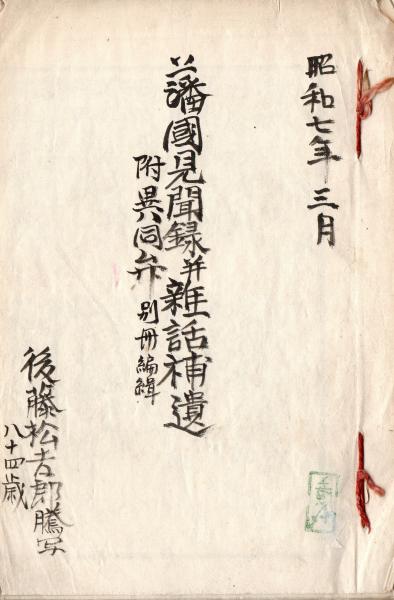 昭和七年三月
藩國見聞錄并雜話補遺
附異同弁 別冊編輯
後藤松吉郎謄写
八十四歳